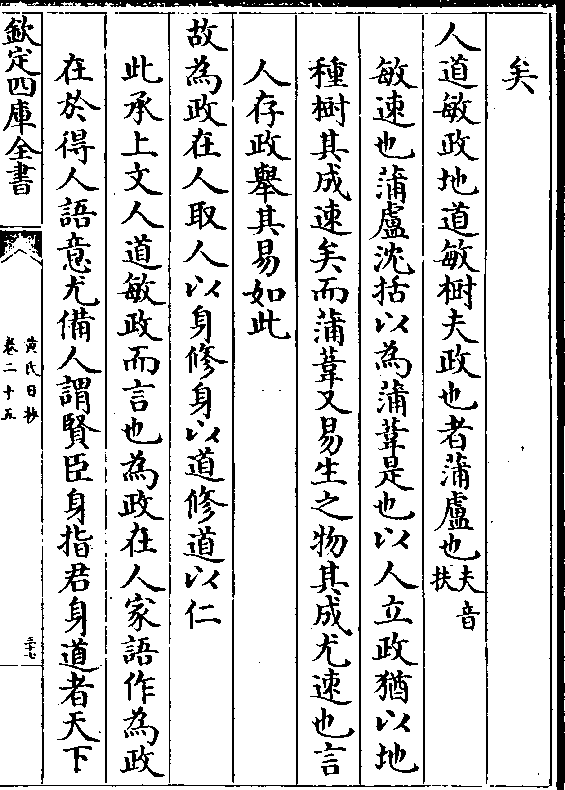 矣
人道敏政地道敏樹夫政也者蒲盧也夫音扶
敏速也蒲盧沈括以為蒲葦是也以人立政猶以地
種樹其成速矣而蒲葦又易生之物其成尤速也言
人存政舉其易如此
故為政在人取人以身修身以道修道以仁
此承上文人道敏政而言也為政在人家語作為政
在於得人語意尤備人謂賢臣身指君身道者天下
欽定四庫全書
黃氏日抄
卷二十五
三十七